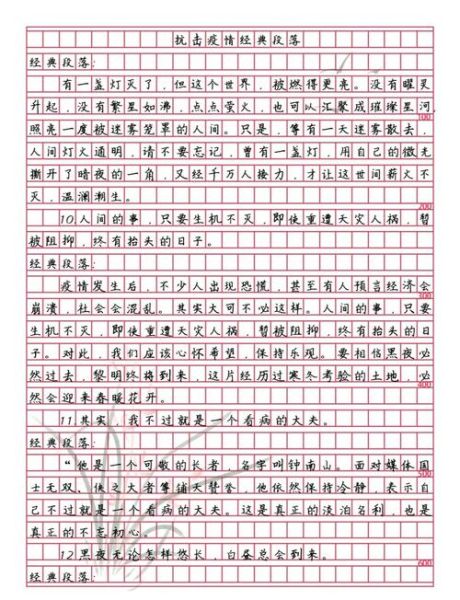 抗击疫情经典段落
经典段落:
有一盏灯灭了,但这个世界,被燃得更亮。没有曜灵
升起,没有繁星如沸,点点萤火,也可以汇聚成璀璨星河,
100
照亮一度被迷雾笼罩的人间。只是,等有一天迷雾散去,
人间灯火通明,请不要忘记,曾有一盏灯,用自己的微光
撕开了暗夜的一角,又经千万人接力,才让这世间薪火不
灭,温澜潮生。
200
10.人间的事,只要生机不灭,即使重遭天灾人祸,暂
被阻抑,终有抬头的日子。
经典段落:
疫情发生后,不少人出现恐慌,甚至有人预言经济会
300
崩溃,社会会混乱。其实大可不必这样。人间的事,只要
生机不灭,即使重遭天灾人祸,暂被阻抑,终有抬头的日
子。对此,我们应该心怀希望,保持乐观。要相信黑夜必
然过去,黎明终将到来,这片经历过寒冬考验的土地,必
400
然会迎来春暖花开。
11.其实,我不过就是一个看病的大夫。
经典段落:
“他是一个可敬的长者,名字叫钟南山。面对媒体国
500
士无双、侠之大者等铺天赞誉,他依然保持冷静,表示自
己不过就是一个看病的大夫。这是真正的淡泊名利,也是
真正的不忘初心。
12.黑夜无论怎样悠长,白昼总会到来。
600
经典段落: